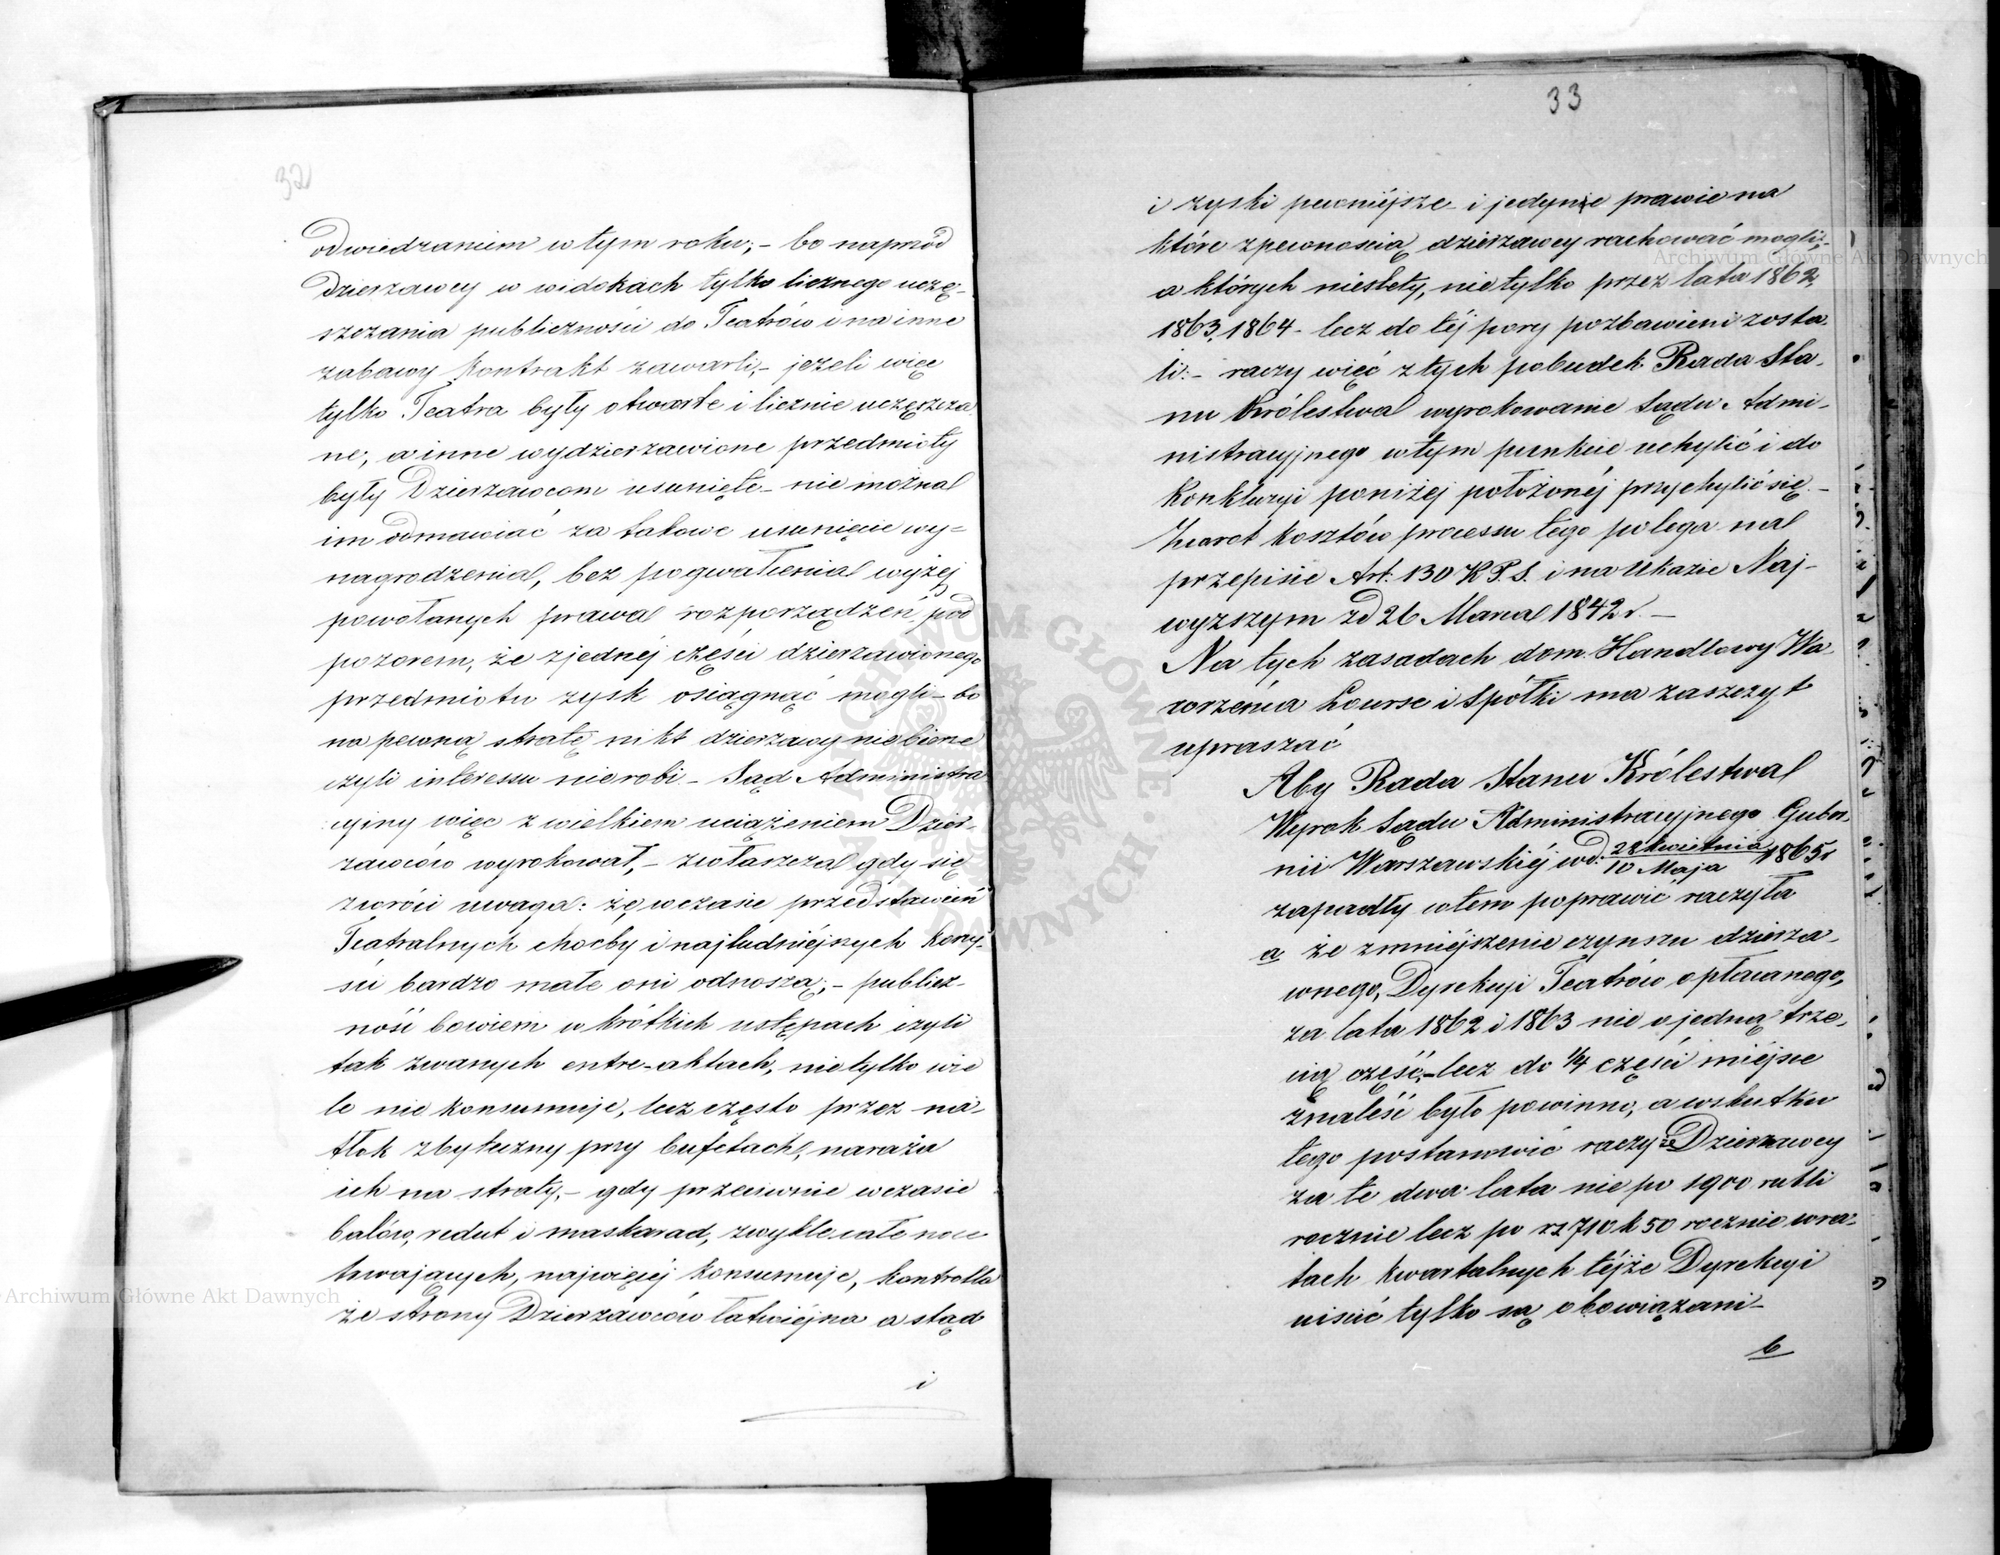 32
odwiedzaniem w tym roku; – bo naprzód
Dzierzawcy w widokach tylko licznego uczę-
szczania publiczności do Teatrów i na inne
zabawy kontrakt zawarli, – jeżeli więc
tylko Teatra były otwarte i licznie uczęszcza
ne, a inne wydzierzawione przedmioty
były Dzierzawcom usunięte – nie można
im odmawiać za takowe usunięcie wy=
nagrodzenia, bez pogwałcenia wyżej
powołanych prawa rozporządzeń, pod
pozorem, że z jednéj części dzierzawionego
przedmiotu zysk osiągnąć mogli – bo
na pewną stratę nikt dzierzawy nie bierze
czyli interessu nie robi – Sąd Administra
cyjny więc z wielkiem uciążeniem Dzier-
zawców wyrokował, – zwłaszcza gdy się
zwróci uwaga: że w czasie przedstawień
Teatralnych choćby i najludniéjszych korzy-
ści bardzo małe oni odnoszą; – publicz-
ność bowiem w krótkich ustępach czyli
tak zwanych entre-aktach, nie tylko wie
le nie konsumuje, lecz często przez na-
tłok zbyteczny przy bufetach, naraża
ich na straty, – gdy przeciwnie w czasie
balów, redut i maskarad, zwykle całe noce
trwających, najwięcéj konsumuje, kontrolla
ze strony Dzierzawców łatwiéjsza a stąd
i
33
i zyski pewniéjsze i jedynie prawie na
które z pewnością dzierzawcy rachować mogli; –
a których niestety, nie tylko przez lata 1862,
1863, 1864 – lecz do téj pory pozbawieni zosta-
li: – raczy więc z tych pobudek Rada Sta-
nu Królestwa wyrokowanie Sądu Admi-
nistracyjnego w tym punkcie uchylić i do
konkluzyi poniżéj położonéj przychylić się. –
Zwrot kosztów processu tego polega na
przepisie Art. 130 K.P.S. i na Ukazie Naj-
wyższym z d 26 Marca 1842 r. –
Na tych zasadach dom Handlowy Wa-
wrzeńca Lourse i Spółki ma zaszczyt
upraszać
Aby Rada Stanu Królestwa
Wyrok Sądu Administracyjnego Guber-
nii Warszawskiéj w d. 28 kwietnia / 10 Maja 1865 r
zapadły w tem poprawić raczyła
a że zmniéjszenie czynszu dzierza-
wnego, Dyrekcyi Teatrów opłacanego,
za lata 1862 i 1863 nie o jedną trze-
cią część, – lecz do 1/4 części miéjsce
znaleść było powinno, a w skutku
tego postanowić raczy że Dzierzawcy
za te dwa lata nie po 1900 rubli
rocznie lecz po rs 710 k 50 rocznie w ra-
tach kwartalnych téjże Dyrekcyi
uiścić tylko są obowiązani –
b
Archiwum Główne Akt Dawnych
Archiwum Główne Akt Dawnych
ARCHIWUM GŁÓWNE AKT DAWNYCH